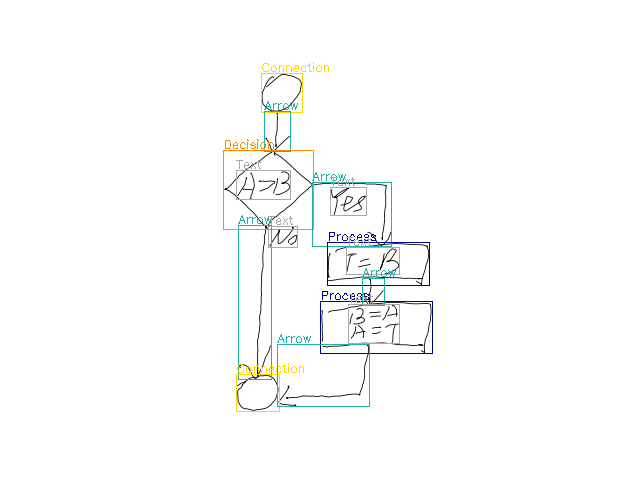 Connection
Arrow
Decision
Text
A>B
Arrow
Text
Yes
Arrow
Text
No
Process
Text
T=B
Arrow
Process
B=A
A=T
Arrow
Connection